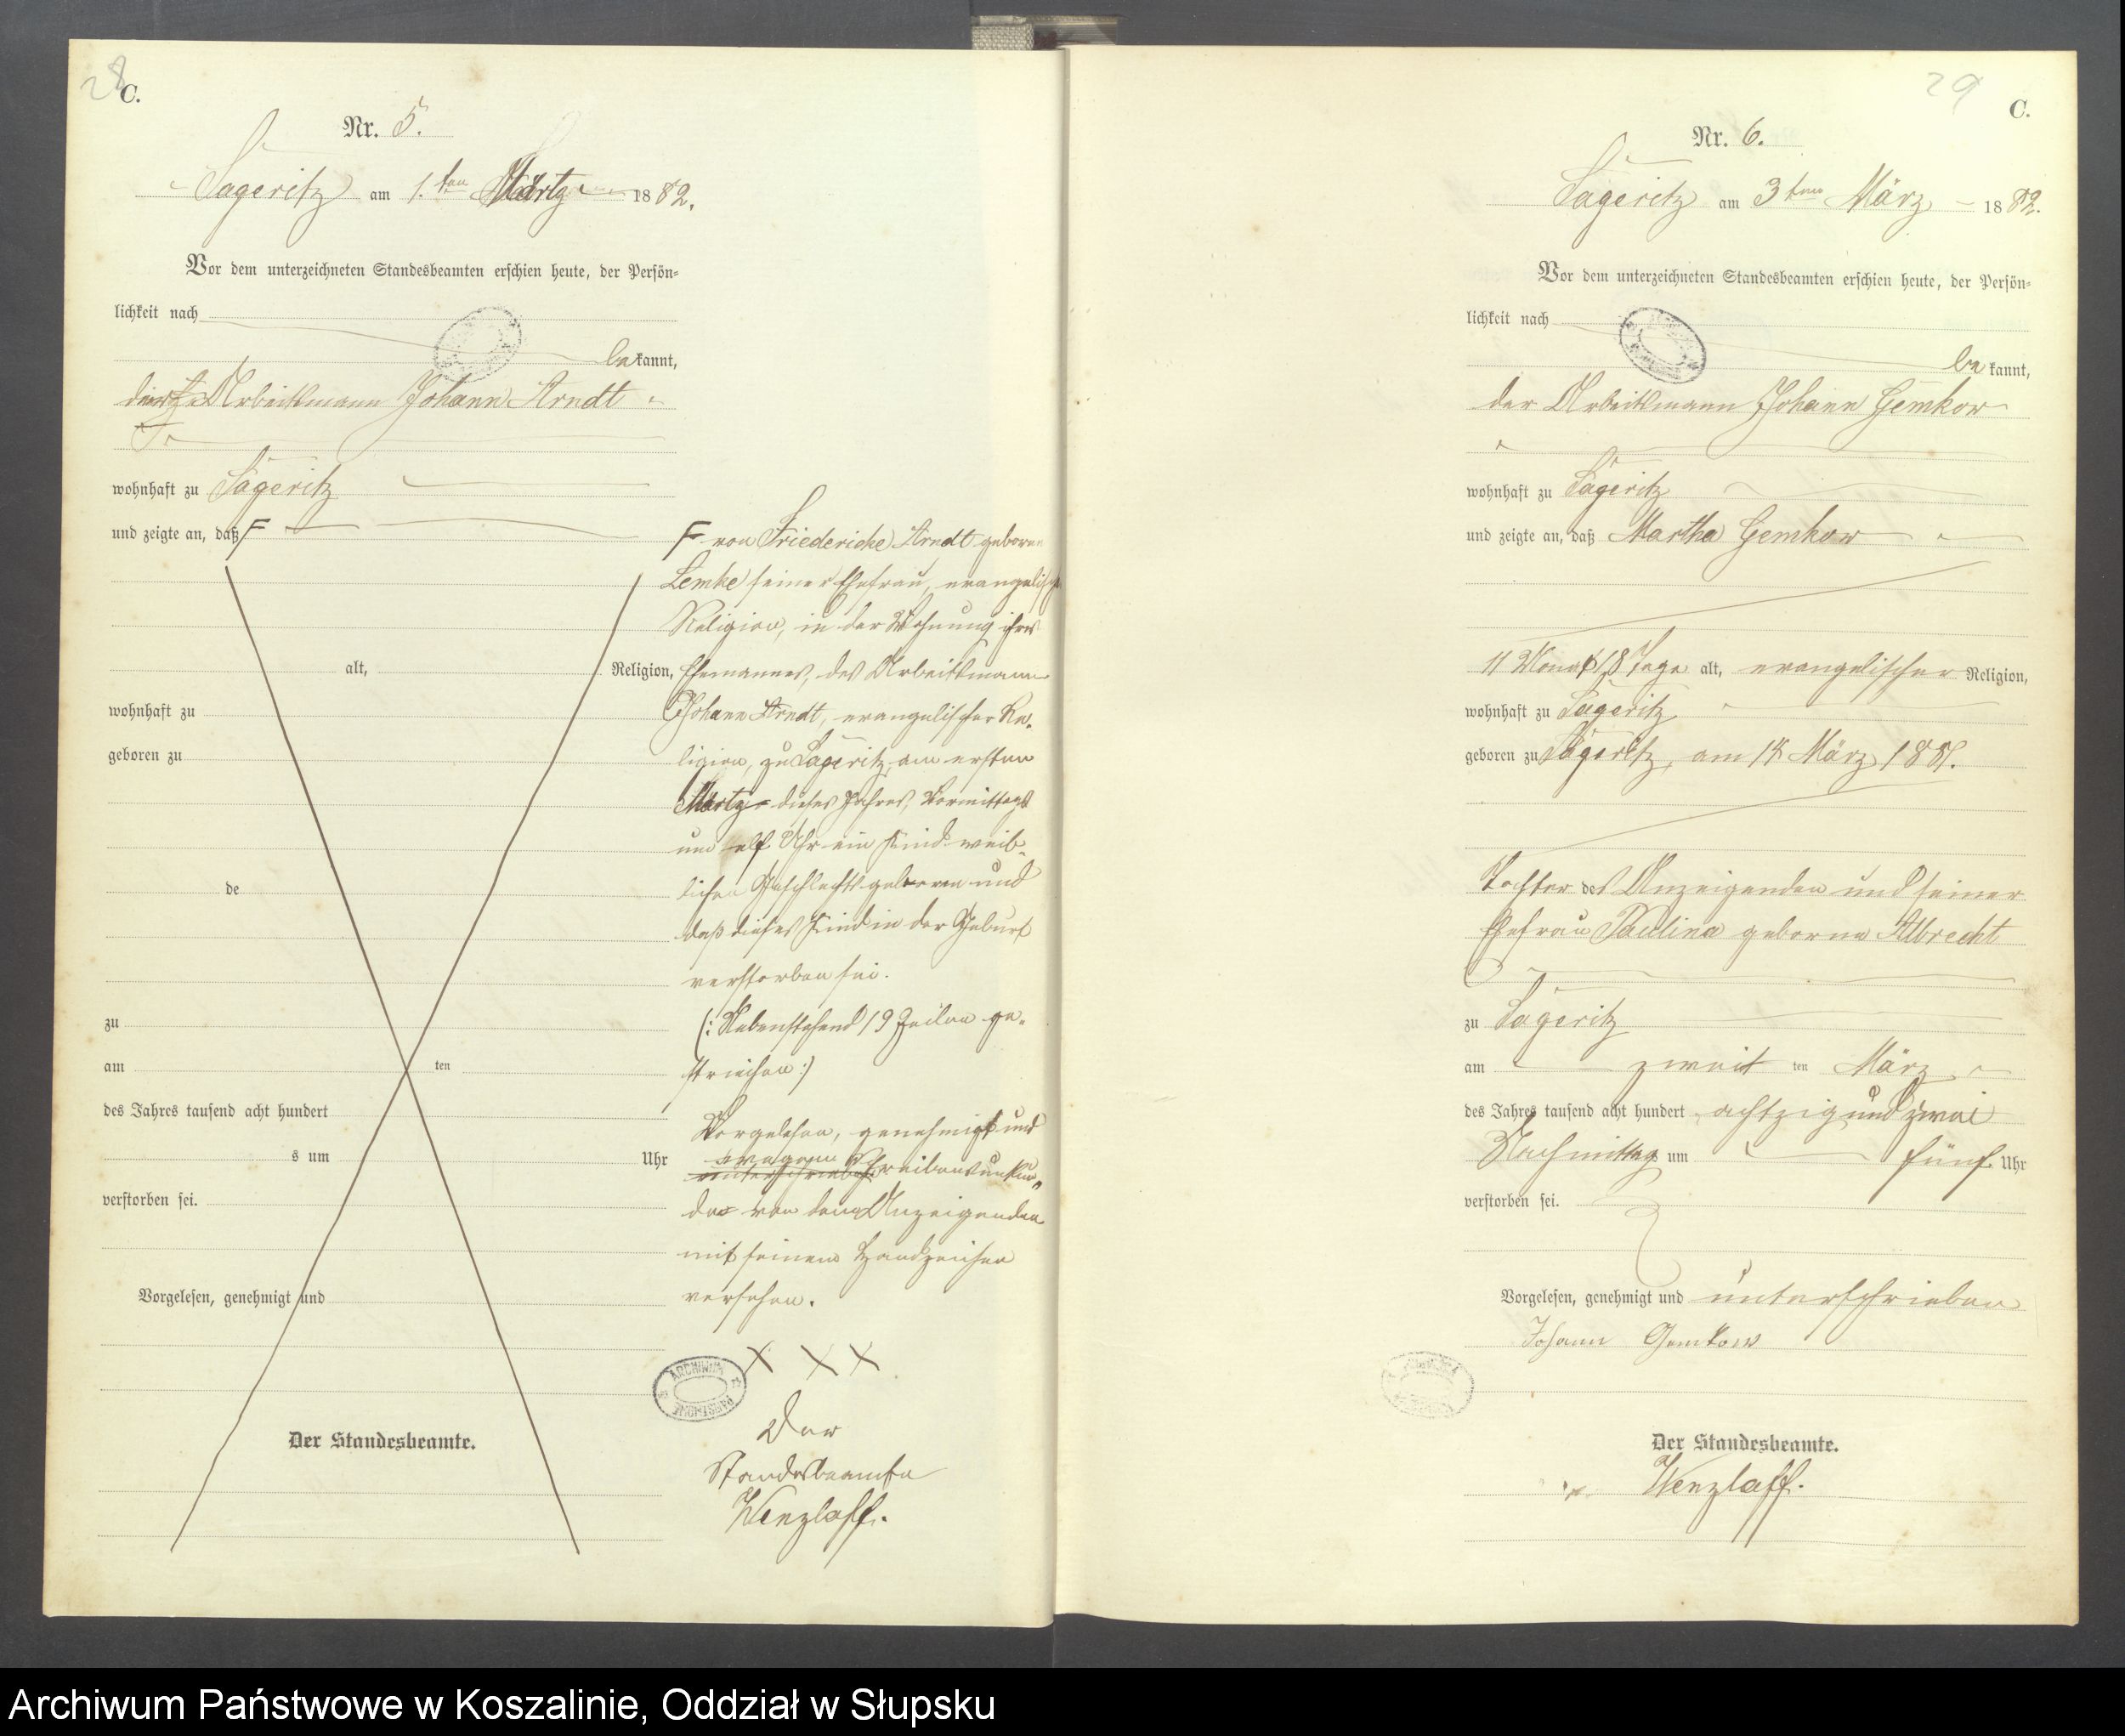 28
C.
Nr. 5.
Sageritz am 1. ten Martz 1882.
Vor dem unterzeichneten Standesbeamten erschien heute, der Persön-
lichkeit nach
bekannt,
Arbeitsmann Johann Arndt
wohnhaft zu Sageritz
und zeigte an, daß F
alt, Religion,
wohnhaft zu
geboren zu
de
zu
am ten
des Jahres tausend acht hundert
s um Uhr
verstorben sei.
Vorgelesen, genehmigt und
Der Standesbeamte.
F von Friederiche Arndt geborne
Lemke seiner Ehefrau, evangelischer
Religion, in der Wohnung ihres
Ehemannes, des Arbeitsmann
Johann Arndt, evangelischer Re-
ligion, zu Sageritz, am ersten
Martz dieses Jahres, Vormittags
um elf Uhr ein Kind weib-
lichen Geschlechts geboren und
daß dieses Kind in der Geburt
verstorben sei.
(: Nebenstehend 19 Zeilen ge-
strichen :)
Vorgelesen, genehmigt und
wegen Schreibensunkun-
de von dem Anzeigenden
mit seinem Handzeichen
versehen.
X X X
ARCHIWUM
Der
Standesbeamte
Wenzlaff.
29
C.
Nr. 6.
Sageritz am 3 ten März 1882.
Vor dem unterzeichneten Standesbeamten erschien heute, der Persön-
lichkeit nach
bekannt,
der Arbeitsmann Johann Gemkow
wohnhaft zu Sageritz
und zeigte an, daß Martha Gemkow
11 Monat 18 Tage alt, evangelischer Religion,
wohnhaft zu Sageritz
geboren zu Sageritz, am 15 März 1881.
Tochter des Anzeigenden und seiner
Ehefrau Paulina geborne Albrecht
zu Sageritz
am zweit ten März
des Jahres tausend acht hundert achtzig und zwei
Nachmittags um fünf Uhr
verstorben sei.
Vorgelesen, genehmigt und unterschrieben
Johann Gemkow
Der Standesbeamte.
Wenzlaff.
Archiwum Państwowe w Koszalinie, Oddział w Słupsku